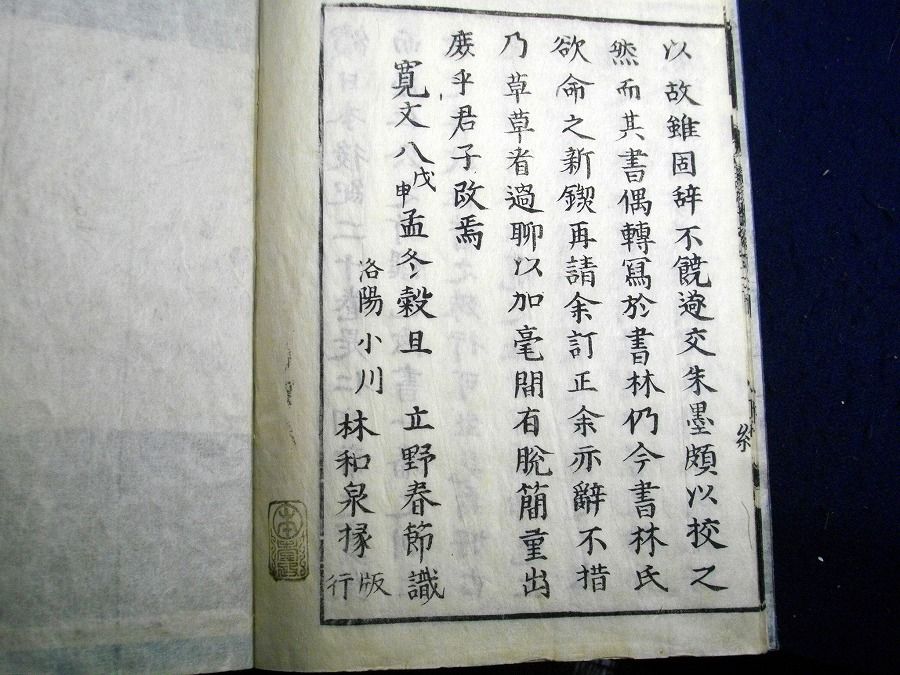 以故雖固辞不饒遂交朱墨頗以挍之
然而其書偶轉寫於書林仍今書林氏
欲命之新鍥再請余訂正余亦辭不措
乃草草看過聊以加毫間有脱簡重出
庶乎君子改焉
寛文八戊申孟冬穀旦 立野春節識
洛陽小川 林和泉掾 版行